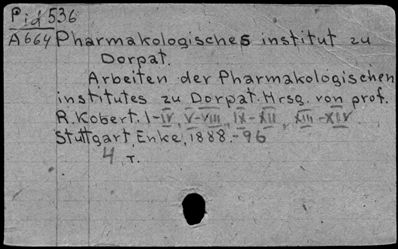 Pid 536
A 664 Pharmakologisches institut zu
Dorpat.
Arbeiten der Pharmakologischen
institutes zu Dorpat. Hrsg. von prof.
R. Kobert. I-IV, V-VIII, IX-XII, XIII-XIV
Stuttgart, Enke, 1888.-96
4 T.